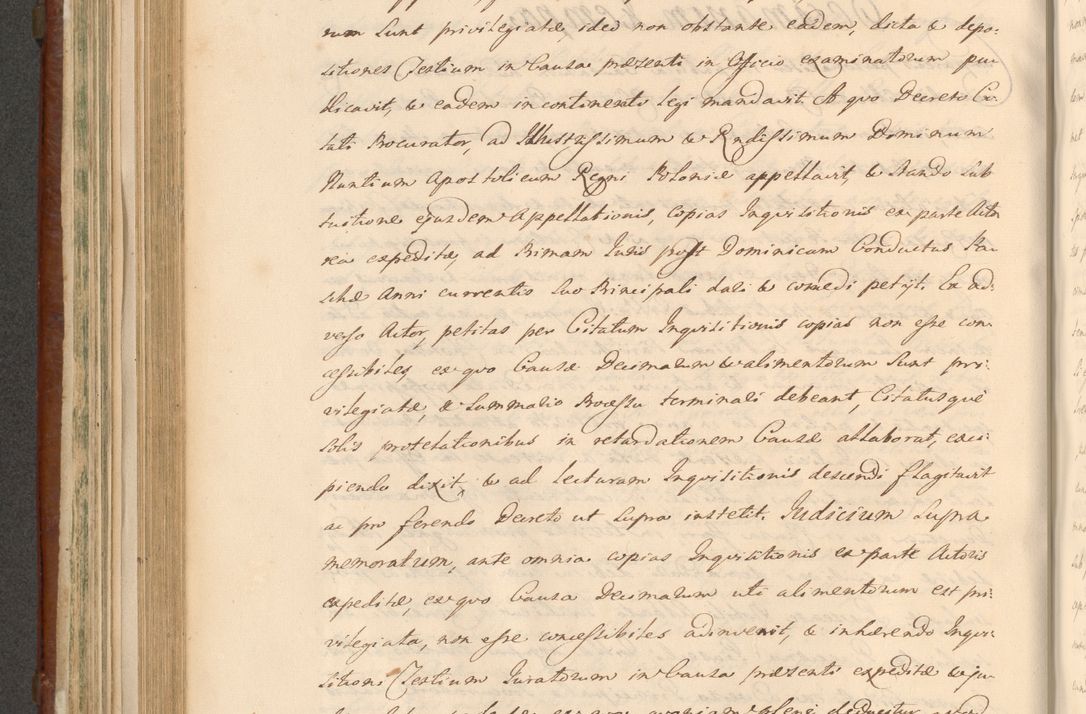 rum sunt privilegiatæ ideo non obstante eadem, dicta & depo-
sitiones Testium in Causa præsenti in Officio examinatorum pu
blicavit, & eadem in continenti legi mandavit. A quo Decreto Ci-
tati Procurator, ad Illustrissimum & Rndissimum Dominum
Nuntium Apostolicum Regni Poloniæ appellavit, & stando sub
tuitione ejusdem Appellationis, copias Inquisitionis ex parte Acto
rea expeditæ ad Primam Juris post Dominicam Conductus Pas
chæ Anni currentis suo Principali dari & comedi petijt. Ex ad-
verso Actor, petitas per Citatum Inquisitionis copias non esse con-
cessibiles, ex quo Causæ Decimarum & alimentorum sunt pri-
vilegiatæ, & summario Processu terminari debeant, Citatusque
solis protelationibus in retardationem Causæ allaborat, exci-
piendo dixit, & ad lecturam Inquisitionis descendi flagitavit
ac pro ferendo Decreto ut supra institit. Judicium supra
memoratum, ante omnia copias Inquisitionis ex parte Actoris
expeditæ, ex quo Causa Decimarum uti alimentorum est pri-
vilegiata, non esse concessibiles adinvenit, & inhærendo Inqui-
sitioni Testium Juratorum in Causa præsenti expeditæ & pu